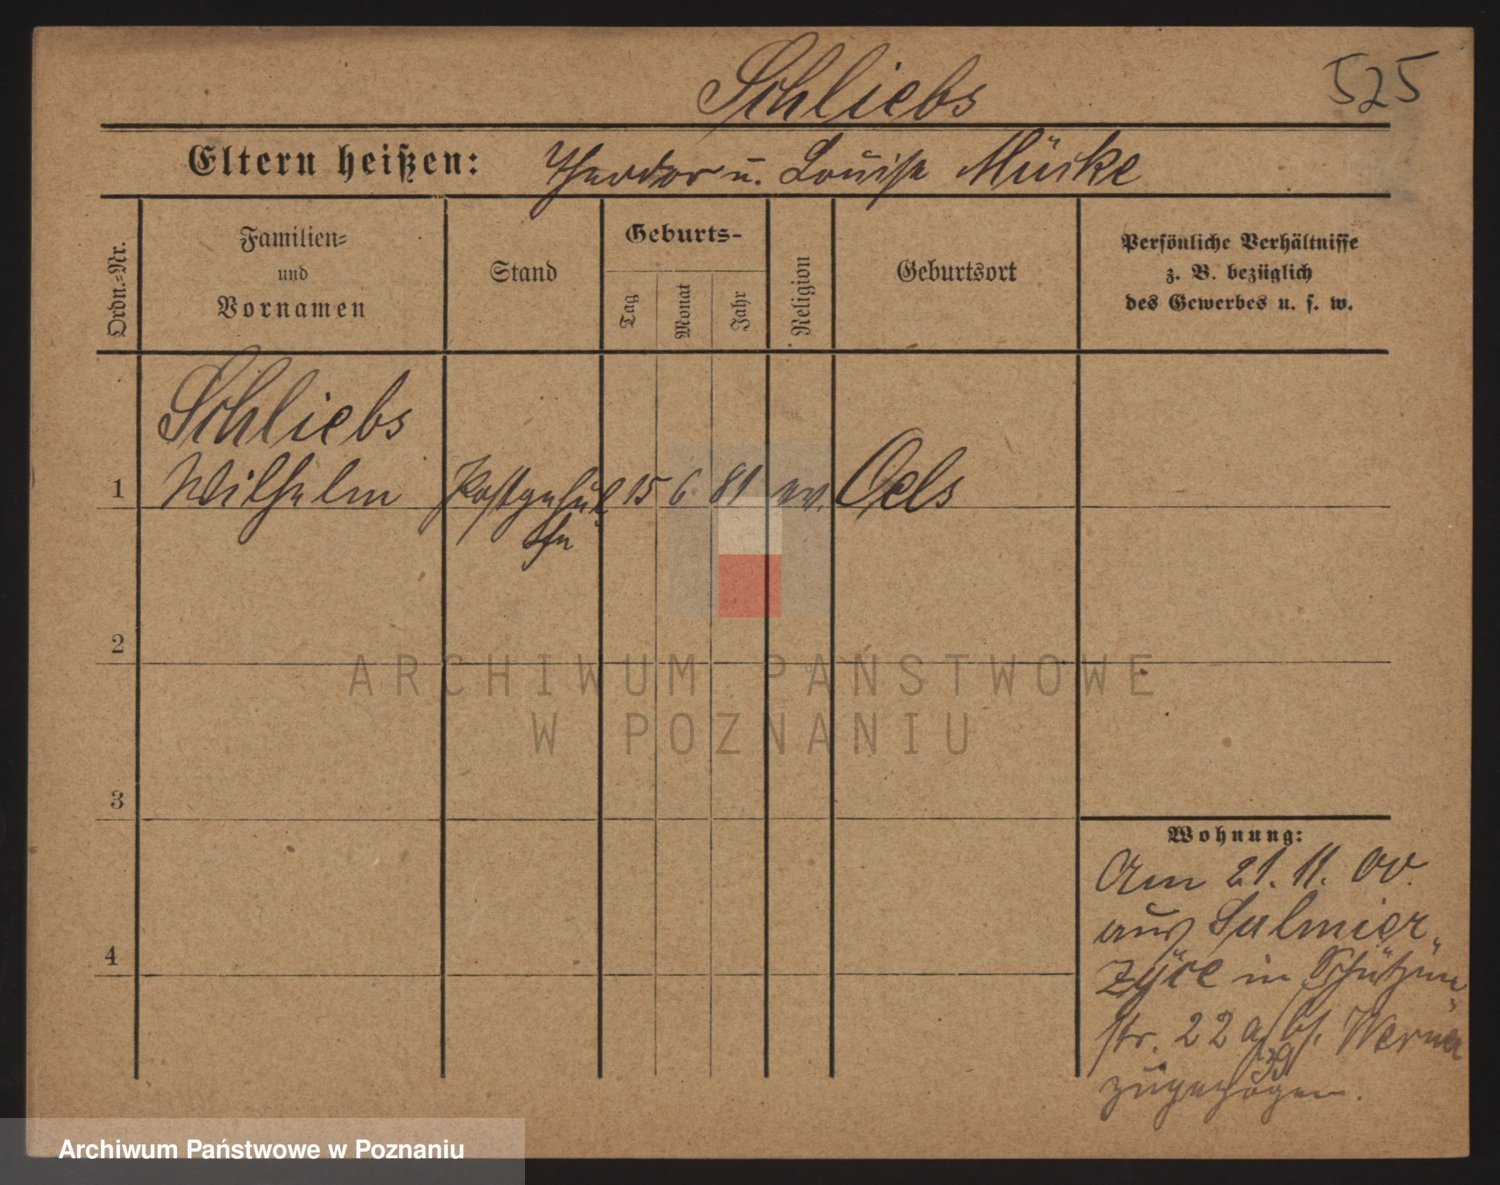 Schliebs
525
Eltern heißen: Theodor u. Louise Müske
Ordn.-Nr.
Familien-
und
Vornamen
Stand
Geburts-
Tag
Monat
Jahr
Religion
Geburtsort
Persönliche Verhältnisse
z. B. bezüglich
des Gewerbes u. s. w.
Schliebs
1 Wilhelm Postgehül 15 6 81 ev. Oels
2
ARCHIWUM PAŃSTWOWE
W POZNANIU
3
Wohnung:
Am 21. 11. 00.
aus Sulmier-
4
zyce in Schützen-
str. 22a bei Werner
zugezogen.
Archiwum Państwowe w Poznaniu